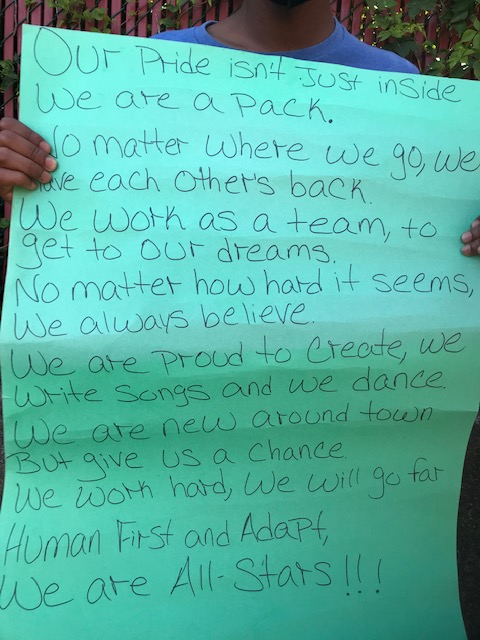 Our Pride isn't Just inside
We are a Pack.
No matter where we go, we
have each other's back.
We work as a team, to
get to our dreams.
No matter how hard it seems,
We always believe.
We are Proud to Create, we
Write Songs and we dance.
We are new around town
But give us a Chance.
We work hard, We will go far
Human First and Adapt,
We are All-Stars!!!